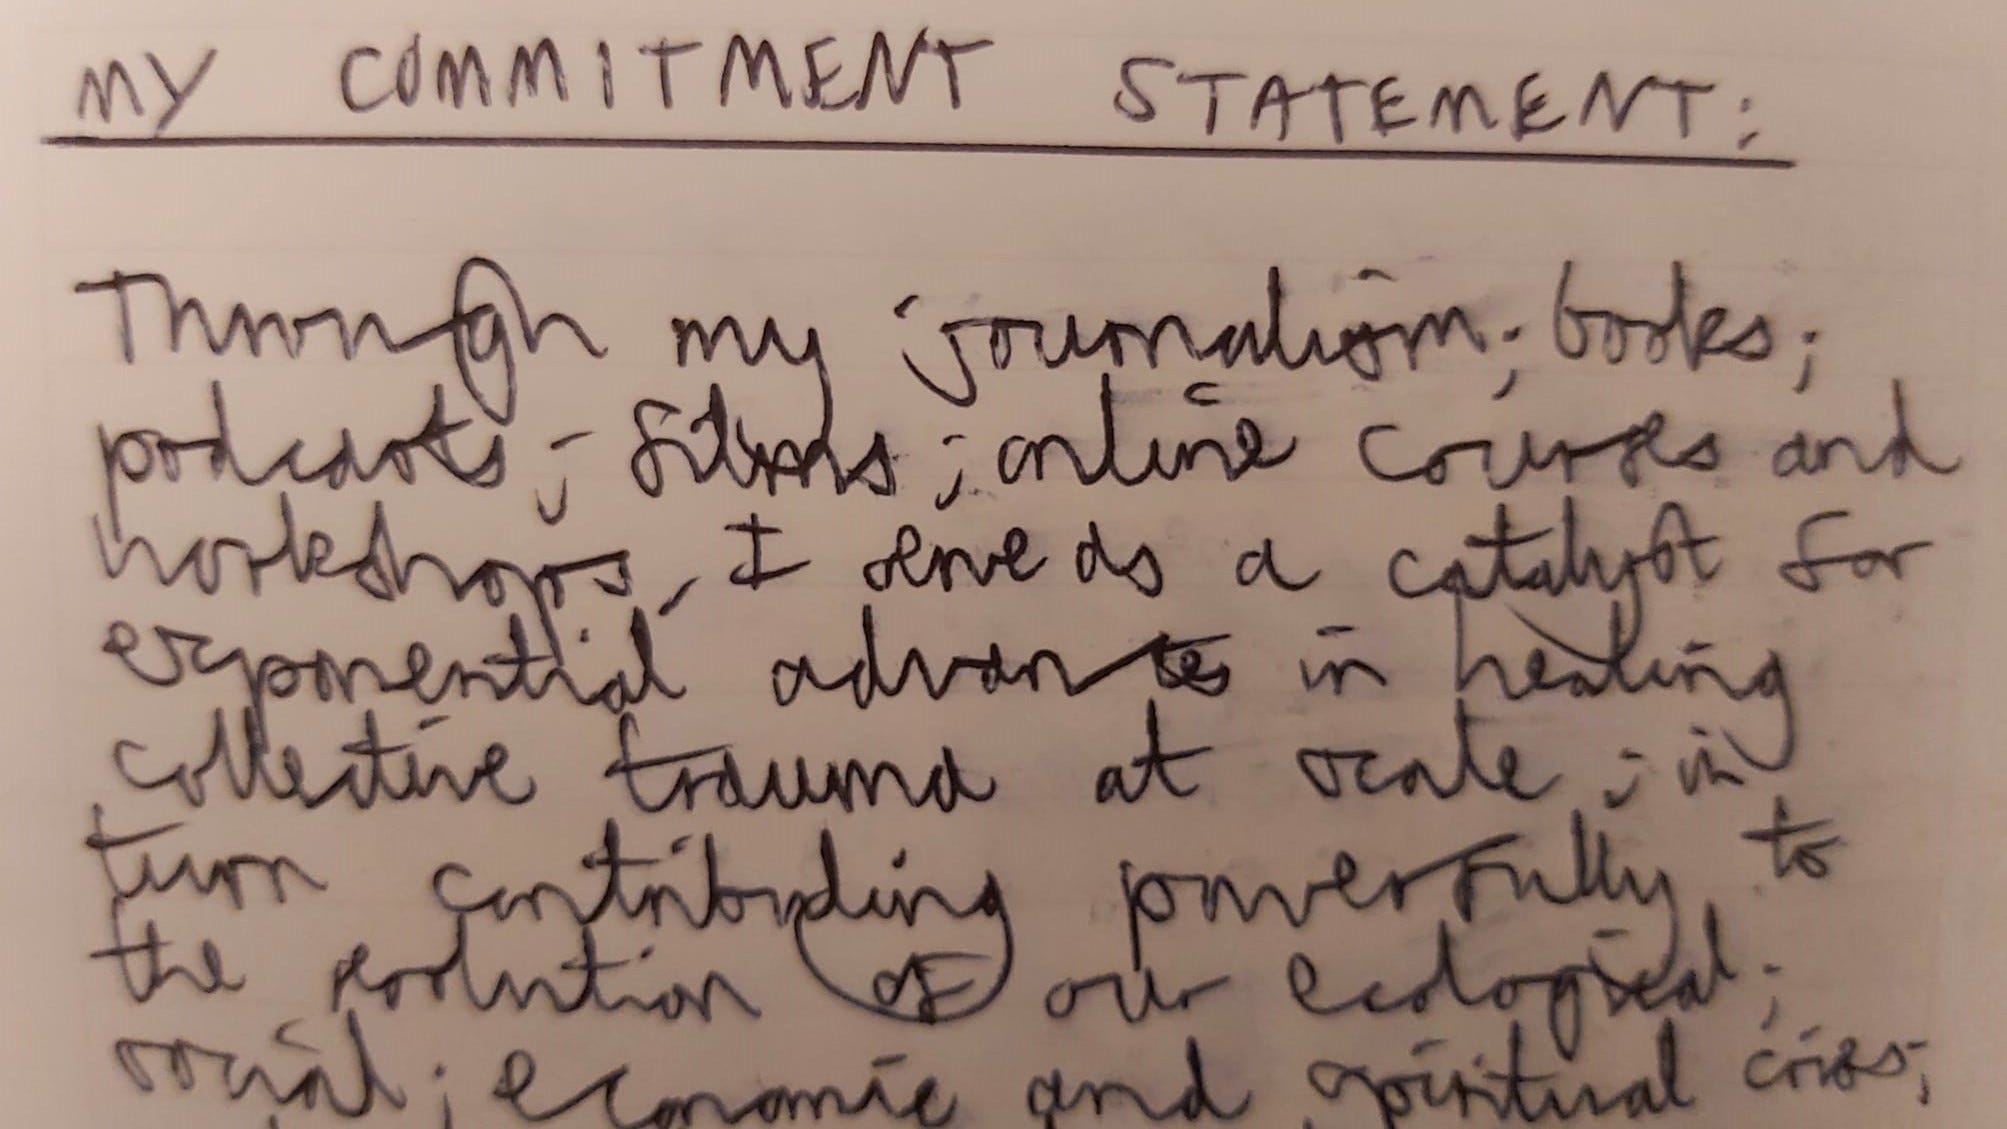 MY COMMITMENT STATEMENT:
Through my journalism; books;
podcasts; films; online courses and
workshops, I serve as a catalyst for
exponential advances in healing
collective trauma at scale; in
turn contributing powerfully to
the resolution of our ecological;
social; economic and spiritual crises;